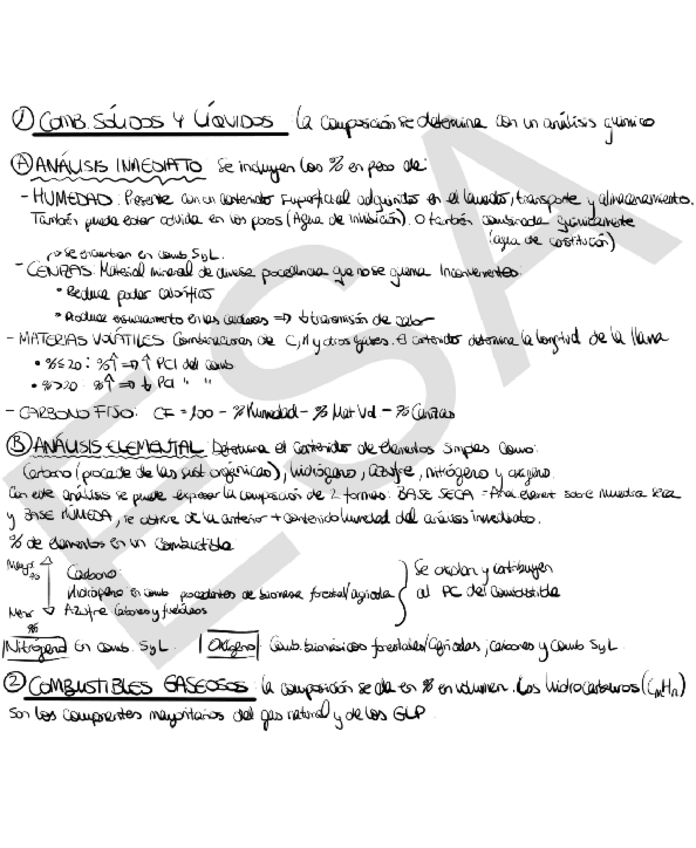 ① COMB. SÓLIDOS Y LÍQUIDOS la composición se determina con un análisis químico
Ⓐ ANÁLISIS INMEDIATO Se incluyen los % en peso de:
- HUMEDAD: Presente con un contenido superficial adquirido en el lavado, transporte y almacenamiento.
También puede estar en los poros (Agua de imbibición). O también combinada químicamente
(agua de constitución)
se encuentran en comb SyL.
- CENIZAS: Material mineral de diversa procedencia que no se quema Inconvenientes:
• Reduce poder calorífico
• Produce ensuciamiento en las calderas => ↓ transmisión de calor
- MATERIAS VOLÁTILES Combinaciones de C, H y otros gases. El contenido determina la longitud de la llama
• %≤20: %↑ => ↑ PCI del comb
• %>20: %↑ => ↓ PCI " "
- CARBONO FIJO: CF = 100 - % Humedad - % Mat Vol - % Cenizas
Ⓑ ANÁLISIS ELEMENTAL Determina el contenido de elementos simples como:
Carbono (procede de las sust orgánicas), hidrógeno, azufre, nitrógeno y oxígeno.
Con este análisis se puede expresar la composición de 2 formas: BASE SECA = Aná. element sobre muestra seca
y BASE HÚMEDA, se obtiene de la anterior + contenido humedad del análisis inmediato.
% de elementos en un combustible
Mayor %
Carbono:
Hidrógeno en comb procedentes de biomasa forestal/agrícola
Azufre Carbones y fuelóleos
Menor %
Se oxidan y contribuyen
al PC del combustible
Nitrógeno En comb. SyL. Oxígeno Comb. biomásicos forestales/agrícolas, carbones y comb SyL
② COMBUSTIBLES GASEOSOS la composición se da en % en volumen. Los hidrocarburos (CmHn)
son los componentes mayoritarios del gas natural y de los GLP
ESA